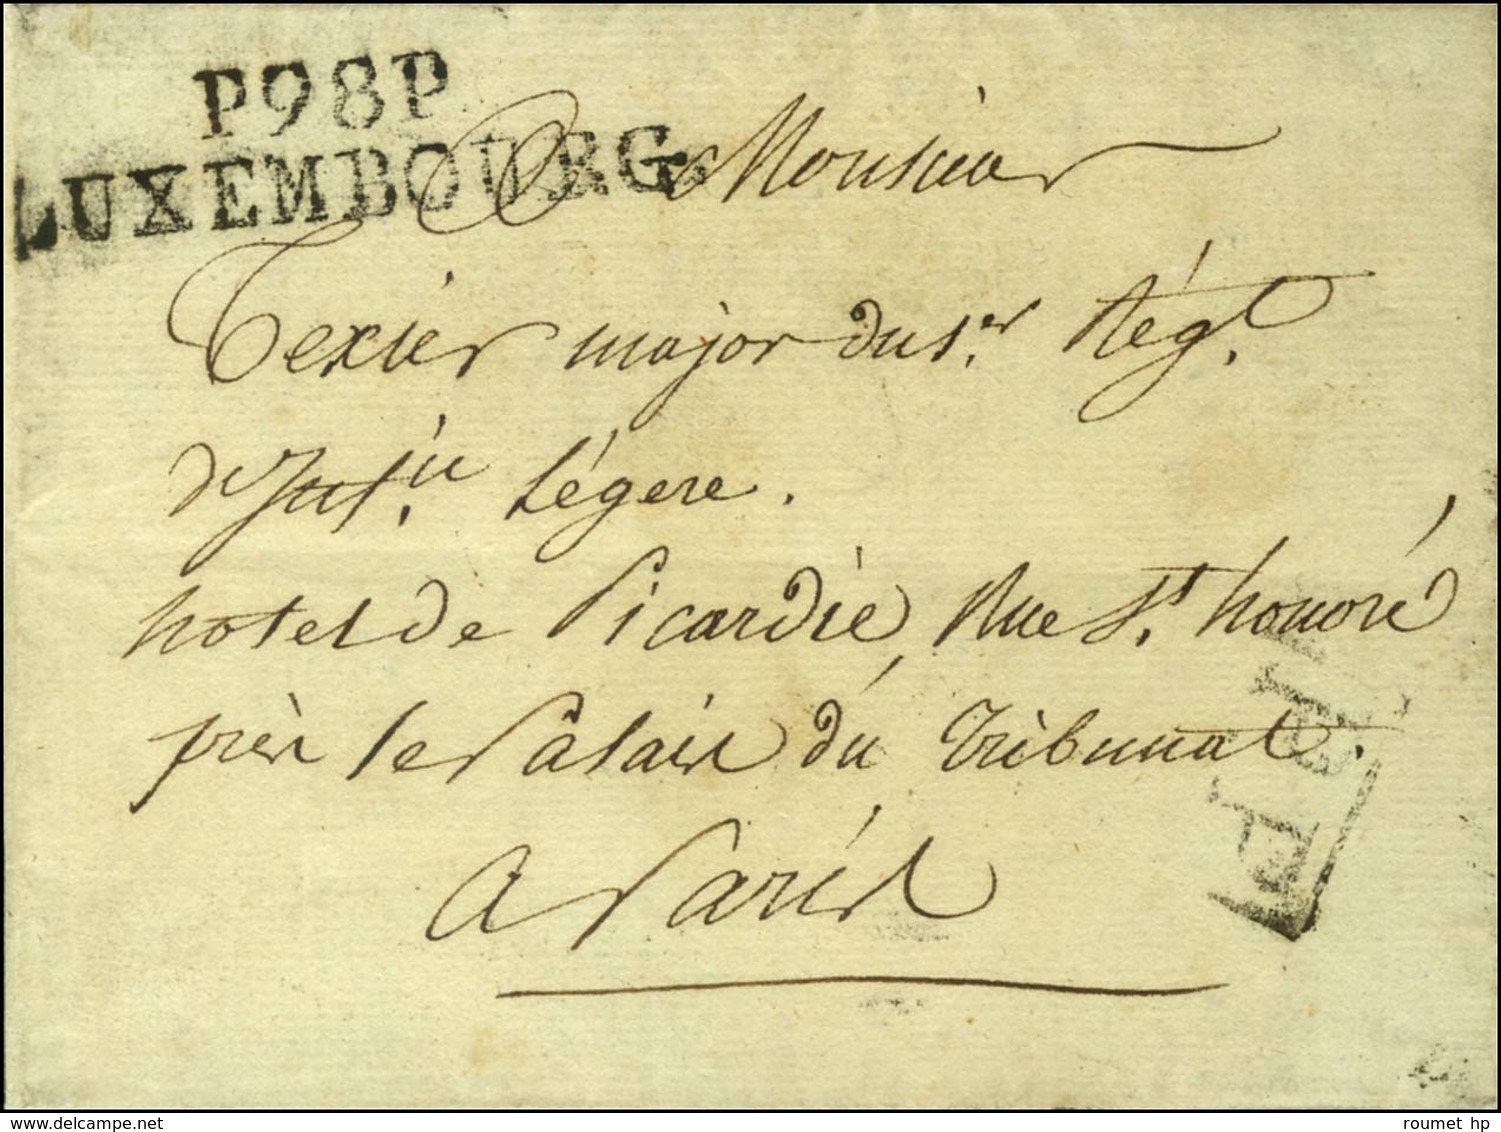 P98P
LUXEMBOURG
A Monsieur
Texier major du 1.er Régt.
d'Inf.ie Légere.
hotel de Picardie, Rue St. honoré
près le Palais du Tribunat.
A Paris
P.P.P.P.
www.delcampe.net
roumet hp